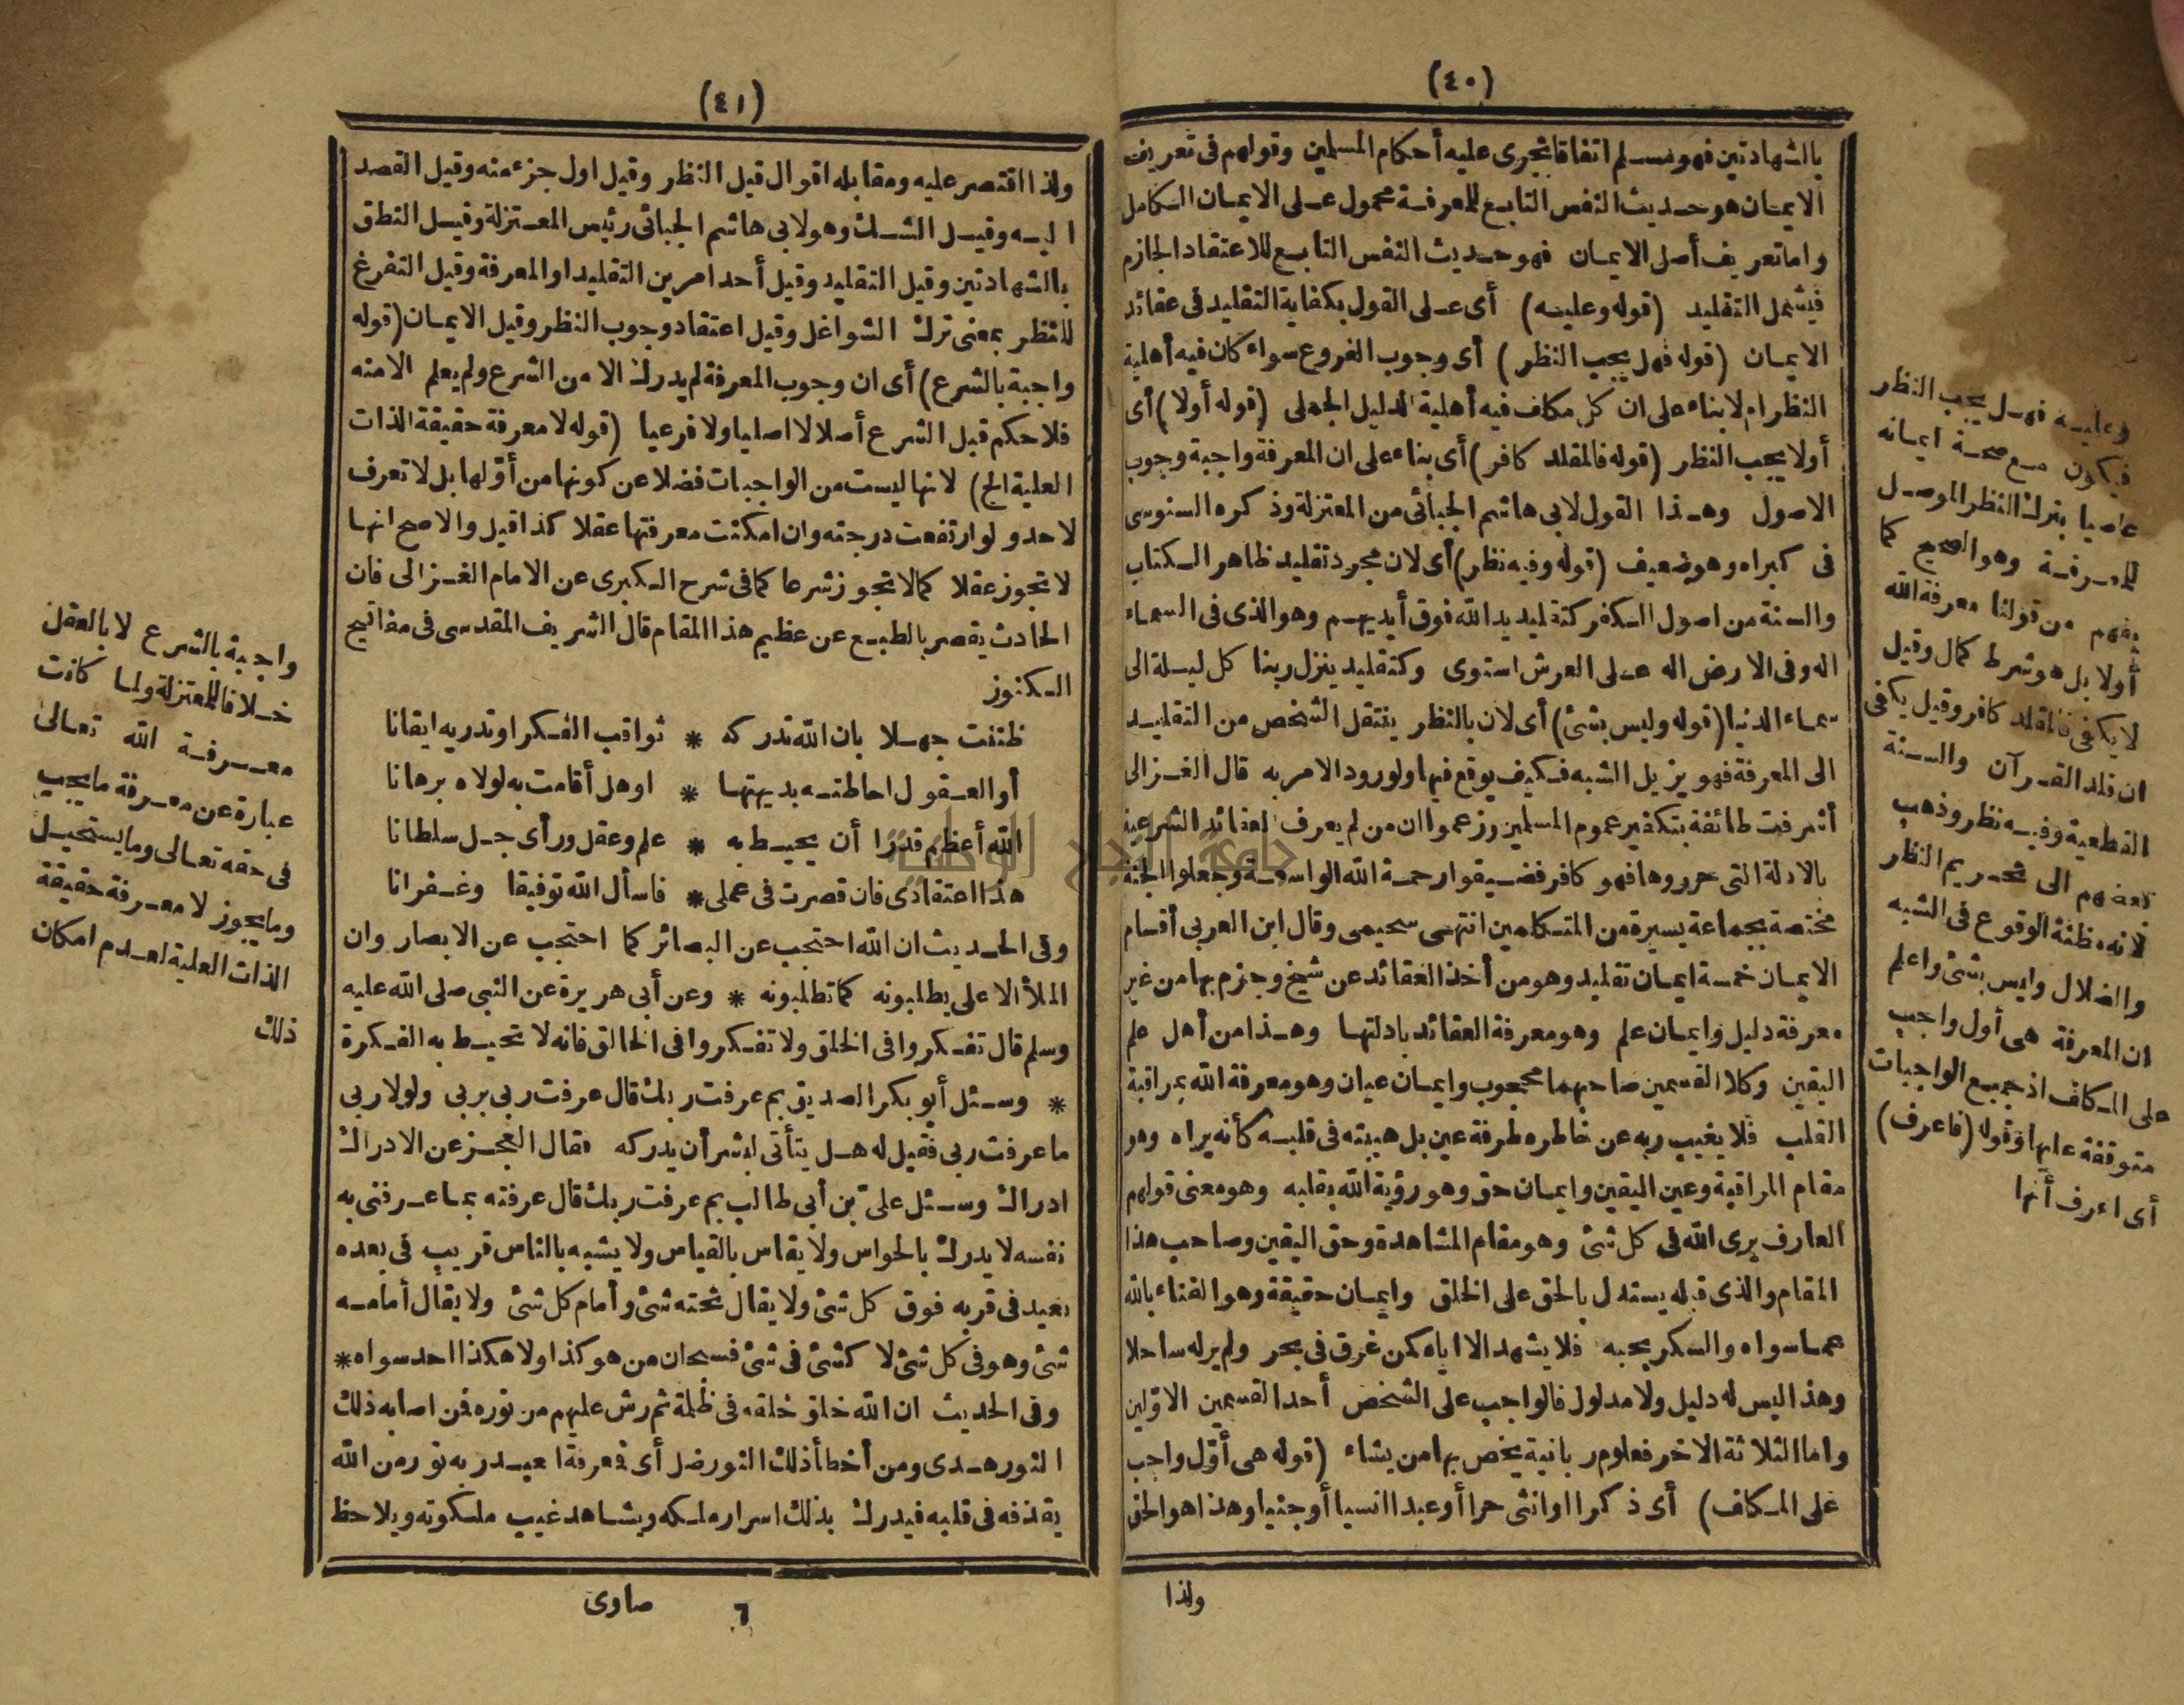 (٤٠)
بالشهادتين فهو مسلم اتفاقا تجرى عليه أحكام المسلمين وقولهم فى تعريف
الايمان هو حديث النفس التابع للمعرفة محمول على الايمان الكامل
واما تعريف أصل الايمان فهو حديث النفس التابع للاعتقاد الجازم
فيشمل التقليد (قوله وعليه) أى على القول بكفاية التقليد فى عقائد
الايمان (قوله فهل يجب النظر) أى وجوب الفروع سواء كان فيه أهلية
النظر ام لا بناء على ان كل مكلف فيه أهلية الدليل الجملى (قوله أولا) أى
أولا يجب النظر (قوله فالمقلد كافر) أى بناء على ان المعرفة واجبة وجوب
الاصول وهذا القول لابى هاشم الجبائى من المعتزلة وذكره السنوسى
فى كبراه وهو ضعيف (قوله وفيه نظر) أى لان مجرد تقليد ظاهر الكتاب
والسنة من اصول الكفر كتقليد يد الله فوق أيديهم وهو الذى فى السماء
اله وفى الارض اله على العرش استوى وكتقليد ينزل ربنا كل ليلة الى
سماء الدنيا (قوله وليس بشئ) أى لان بالنظر ينتقل الشخص من التقليد
الى المعرفة فهو يزيل الشبه فكيف يوقع فيها ولورود الامر به قال الغزالى
أشرفت طائفة بتكفير عموم المسلمين وزعموا ان من لم يعرف العقائد الشرعية
بالادلة التى حرروها فهو كافر فضيقوا رحمة الله الواسعة وجعلوا الجنة
مختصة بجماعة يسيرة من المتكلمين انتهى سحيمى وقال ابن العربى أقسام
الايمان خمسة ايمان تقليد وهو من أخذ العقائد عن شيخ وجزم بها من غير
معرفة دليل وايمان علم وهو معرفة العقائد بادلتها وهذا من أهل علم
اليقين وكلا القسمين صاحبهما محجوب وايمان عيان وهو معرفة الله بمراقبة
القلب فلا يغيب ربه عن خاطره طرفة عين بل هيبته فى قلبه كأنه يراه وهو
مقام المراقبة وعين اليقين وايمان حق وهو رؤية الله بقلبه وهو معنى قولهم
العارف يرى الله فى كل شئ وهو مقام المشاهدة وحق اليقين وصاحب هذا
المقام والذى قبله يستدل بالحق على الخلق وايمان حقيقة وهو الفناء بالله
عما سواه والسكر بحبه فلا يشهد الا اياه كمن غرق فى بحر ولم ير له ساحلا
وهذا ليس له دليل ولا مدلول فالواجب على الشخص أحد القسمين الاولين
واما الثلاثة الاخر فعلوم ربانية يخص بها من يشاء (قوله هى أول واجب
على المكلف) أى ذكرا اوانثى حرا أو عبدا انسيا أو جنيا وهذا هو الحق
ولذا
وعليه فهل يجب النظر
فيكون مع صحة ايمانه
عاصيا بترك النظر الموصل
للمعرفة وهو الصحيح كما
يفهم من قولنا معرفة الله
أولا بل هو شرط كمال وقيل
لا يكفى فالمقلد كافر وقيل يكفى
ان قلد القرآن والسنة
القطعية وفيه نظر وذهب
بعضهم الى تحريم النظر
لانه مظنة الوقوع فى الشبه
والضلال وليس بشئ واعلم
ان المعرفة هى أول واجب
على المكلف اذ جميع الواجبات
متوقفة عليها وقوله (فاعرف)
أى اعرف أنها
(٤١)
ولذا اقتصر عليه ومقابله اقوال قيل النظر وقيل اول جزء منه وقيل القصد
اليه وقيل الشك وهو لابى هاشم الجبائى رئيس المعتزلة وقيل النطق
بالشهادتين وقيل التقليد وقيل أحد امرين التقليد او المعرفة وقيل التفرغ
للنظر بمعنى ترك الشواغل وقيل اعتقاد وجوب النظر وقيل الايمان (قوله
واجبة بالشرع) أى ان وجوب المعرفة لم يدرك الا من الشرع ولم يعلم الا منه
فلا حكم قبل الشرع أصلا لا اصليا ولا فرعيا (قوله لا معرفة حقيقة الذات
العلية الخ) لانها ليست من الواجبات فضلا عن كونها من أولها بل لا تعرف
لاحد ولو ارتفعت درجته وان امكنت معرفتها عقلا كذا قيل والاصح انها
لا تجوز عقلا كما لا تجوز شرعا كما فى شرح الكبرى عن الامام الغزالى فان
الحادث يقصر بالطبع عن عظيم هذا المقام قال الشريف المقدسى فى مفاتيح
الكنوز
ظننت جهلا بان الله تدركه * ثواقب الفكر او تدريه ايقانا
أو العقول احاطته بديهتها * او هل أقامت به لولاه برهانا
الله أعظم قدرا أن يحيط به * علم وعقل ورأى جل سلطانا
هذا اعتقادى فان قصرت فى عملى * فاسأل الله توفيقا وغفرانا
وفى الحديث ان الله احتجب عن البصائر كما احتجب عن الابصار وان
الملأ الاعلى يطلبونه كما تطلبونه * وعن أبى هريرة عن النبى صلى الله عليه
وسلم قال تفكروا فى الخلق ولا تفكروا فى الخالق فانه لا تحيط به الفكرة
* وسئل أبو بكر الصديق بم عرفت ربك قال عرفت ربى بربى ولولا ربى
ما عرفت ربى فقيل له هل يتأتى لبشر أن يدركه فقال العجز عن الادراك
ادراك وسئل على بن أبى طالب بم عرفت ربك قال عرفته بما عرفنى به
نفسه لا يدرك بالحواس ولا يقاس بالقياس ولا يشبه بالناس قريب فى بعده
بعيد فى قربه فوق كل شئ ولا يقال تحته شئ وأمام كل شئ ولا يقال أمامه
شئ وهو فى كل شئ لا كشئ فى شئ فسبحان من هو كذا ولا هكذا احد سواه *
وفى الحديث ان الله خلق خلقه فى ظلمة ثم رش عليهم من نوره فمن اصابه ذلك
النور هدى ومن أخطأ ذلك النور ضل أى فمعرفة العبد ربه نور من الله
يقذفه فى قلبه فيدرك بذلك اسرار ملكه ويشاهد غيب ملكوته ويلاحظ
٦ صاوى
واجبة بالشرع لا بالعقل
خلافا للمعتزلة ولما كانت
معرفة الله تعالى
عبارة عن معرفة ما يجب
فى حقه تعالى وما يستحيل
وما يجوز لا معرفة حقيقة
الذات العلية لعدم امكان
ذلك